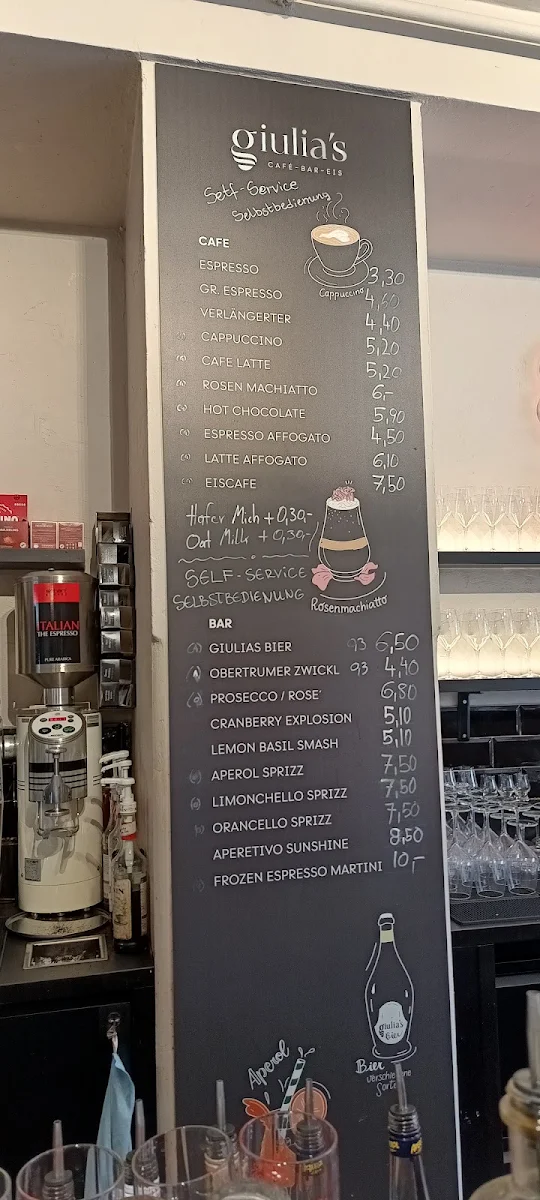 giulia's
CAFÉ-BAR-EIS
Self-Service
Selbstbedienung
CAFE
ESPRESSO 3,30
GR. ESPRESSO 4,60
VERLÄNGERTER 4,40
CAPPUCCINO 5,20
CAFE LATTE 5,20
ROSEN MACHIATTO 6,-
HOT CHOCOLATE 5,90
ESPRESSO AFFOGATO 4,50
LATTE AFFOGATO 6,10
EISCAFE 7,50
Cappuccino
Hafer Mich + 0,30,-
Oat Milk + 0,30,-
SELF-SERVICE
SELBSTBEDIENUNG
Rosenmachiatto
BAR
GIULIAS BIER 93 6,50
OBERTRUMER ZWICKL 93 4,40
PROSECCO / ROSE' 6,80
CRANBERRY EXPLOSION 5,10
LEMON BASIL SMASH 5,10
APEROL SPRIZZ 7,50
LIMONCHELLO SPRIZZ 7,50
ORANCELLO SPRIZZ 7,50
APERETIVO SUNSHINE 8,50
FROZEN ESPRESSO MARTINI 10,-
giulia's
Bier
Bier
Aperol
ITALIAN
THE ESPRESSO
PURE ARABICA